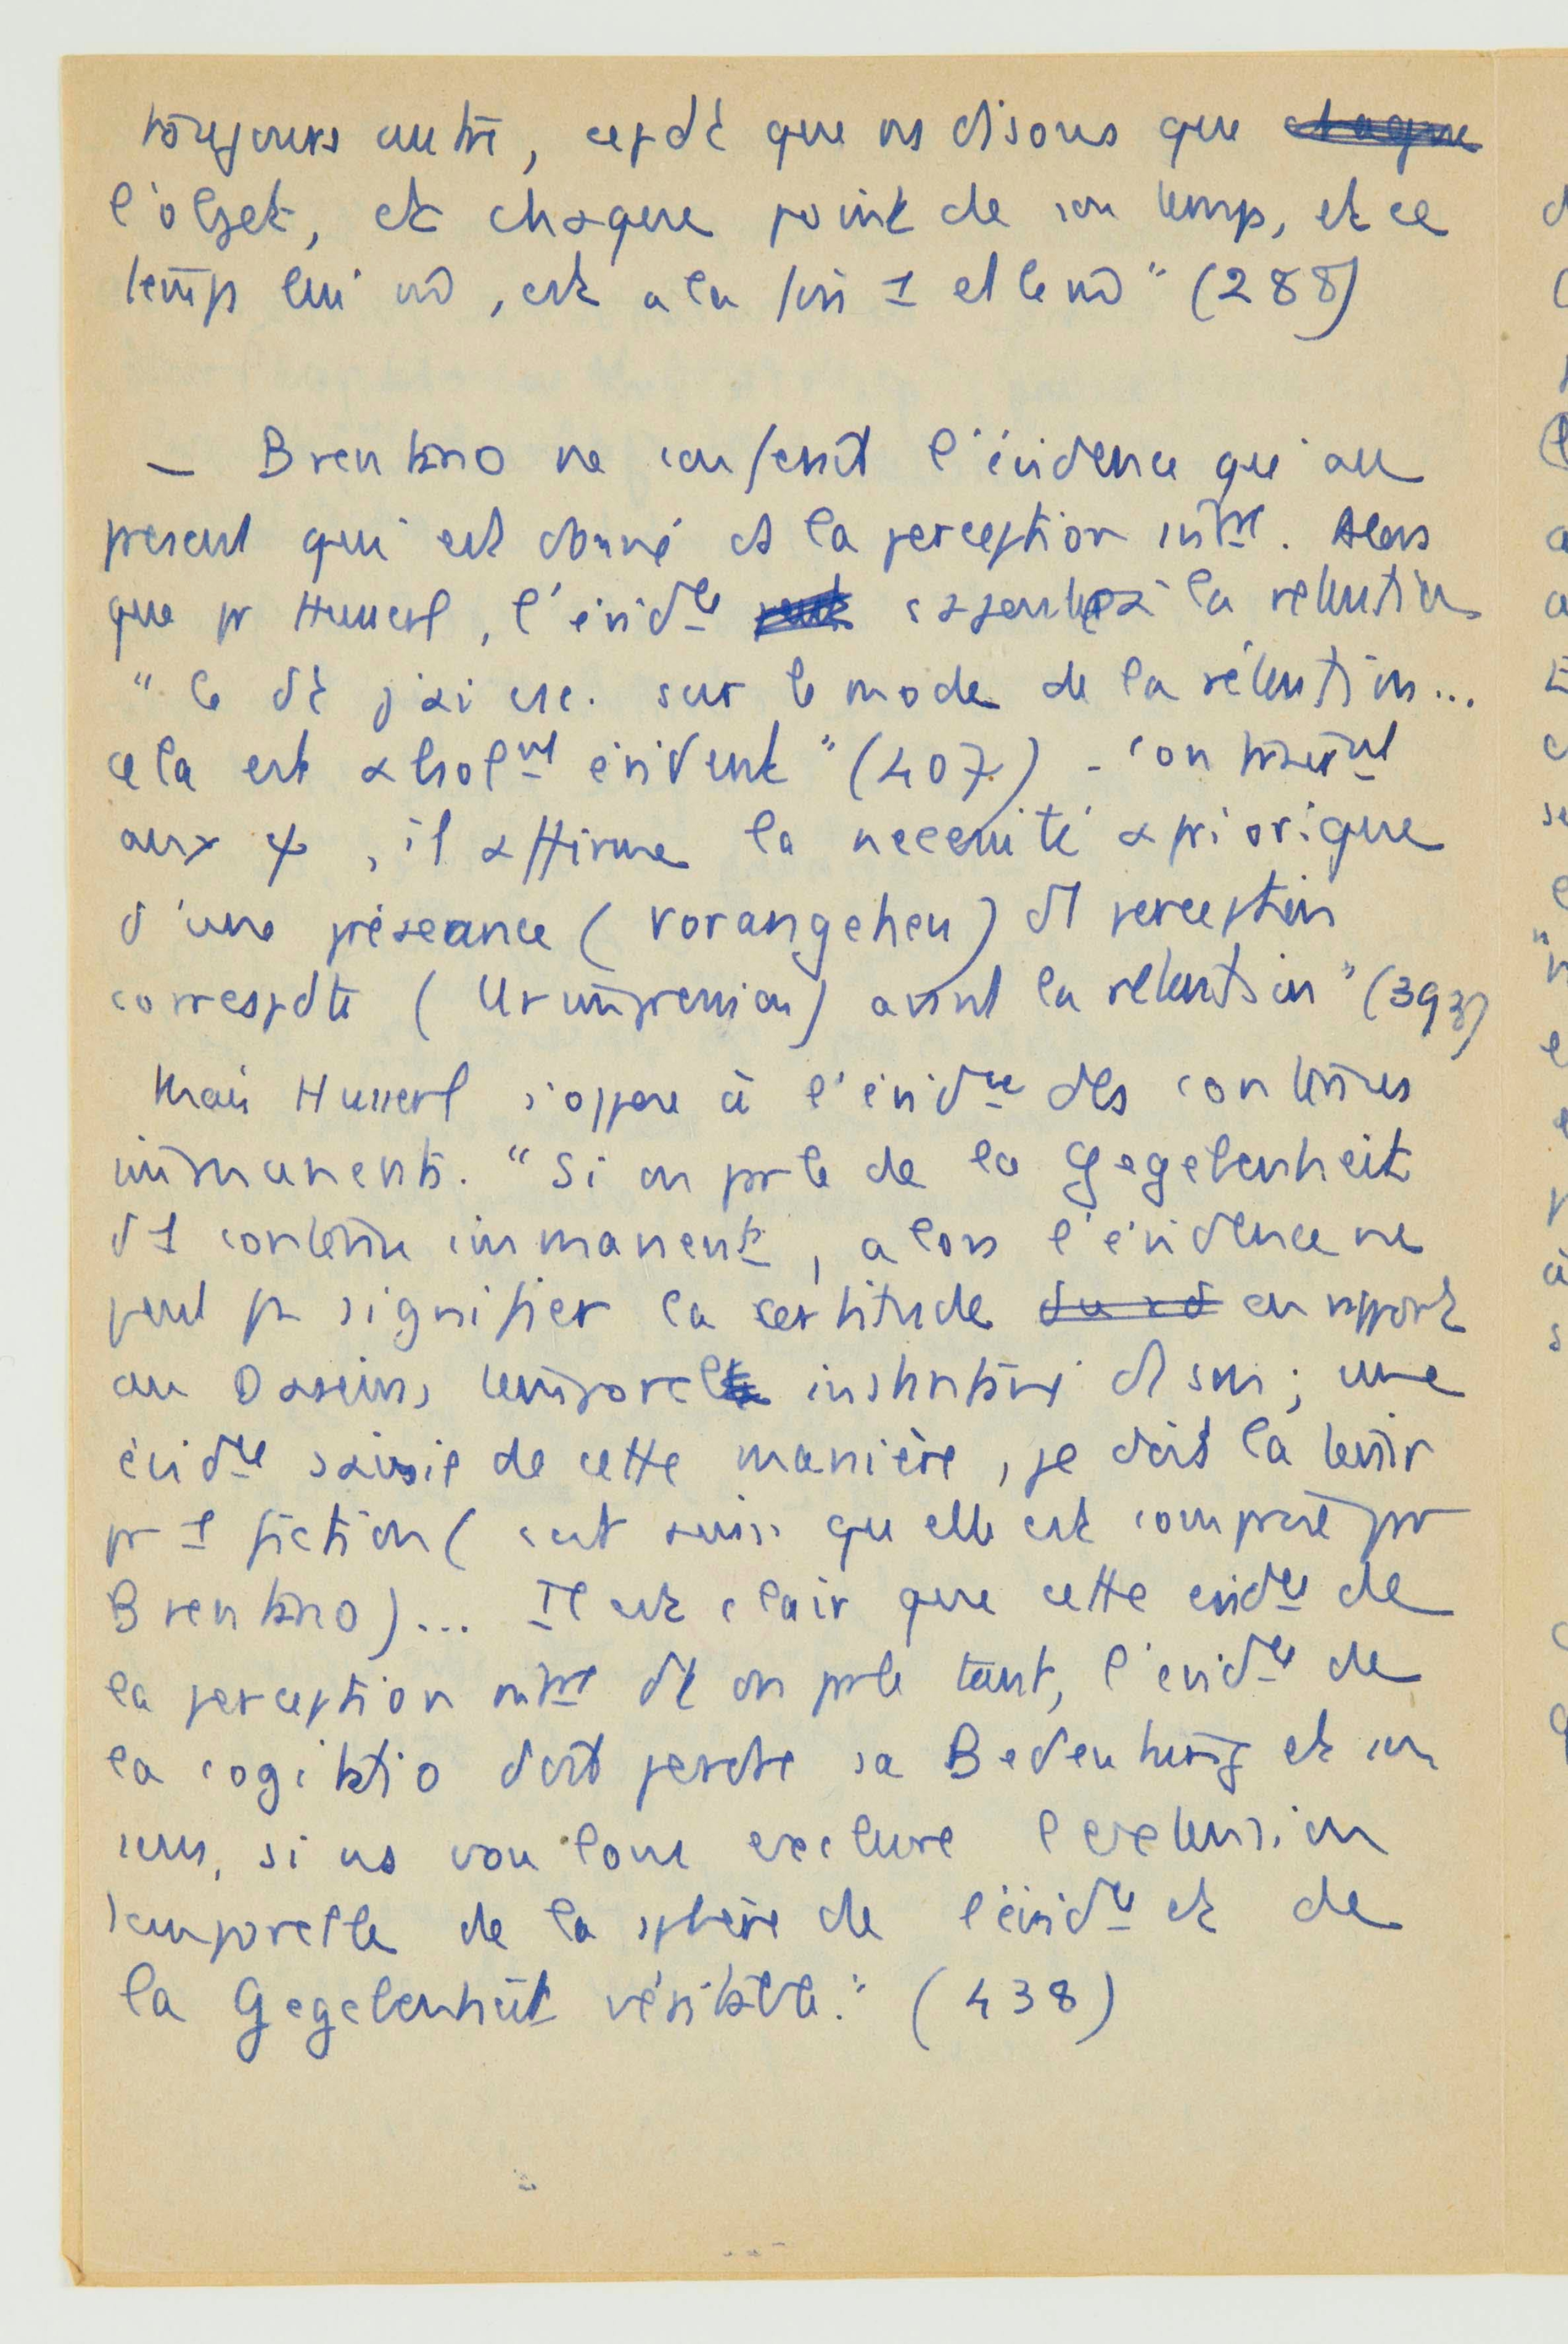 toujours autre, cepdt que ns disons que chaque
l'objet, et chaque point de son temps, et ce
temps lui m̂, est a la fois 1 et le m̂" (288)
— Brentano ne conferait l'évidence qu'au
present qui est donné ds la perception intne. Alors
que pr Husserl, l'évidce s'étend à la retention
"Ce dt j'ai csc. sur le mode de la rétention...
cela est absolmt évident" (407) - Contrairmt
aux ψ, il affirme la necessité apriorique
d'une préséance (Vorangehen) de perception
correspdte (Urimpression) avant la retention" (393)
Mais Husserl s'oppose à l'évidce des contenus
immanents. "Si on parle de la Gegebenheit
d'1 contenu immanent, alors l'évidence ne
peut pas signifier la certitude en rapport
au Dasein temporel instantané du son; une
évidce saisie de cette manière, je dois la tenir
pr 1 fiction (c'est ainsi qu'elle est comprise par
Brentano)... Il est clair que cette evidce de
la perception intne dt on parle tant, l'evidce de
la cogitatio doit perdre sa Bedeutung et son
sens, si ns voulons exclure l'extension
temporelle de la sphère de l'évidce et de
la Gegebenheit véritable." (438)